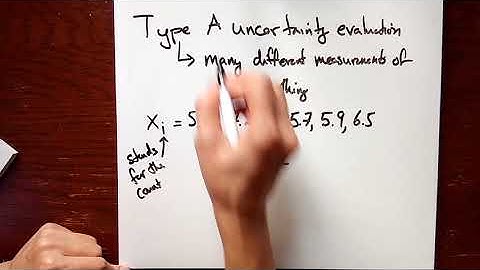 Type A uncertainty evaluation
↳ many different measurements of
thing
xi = 5 5.7, 5.9, 6.5
stands
for the
count